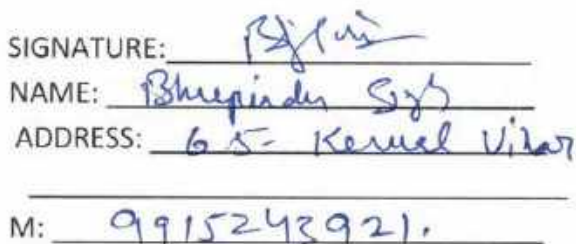 SIGNATURE:
NAME: Bhupinder Sigh
ADDRESS: 65- Kerual Vihar
M: 9915243921.